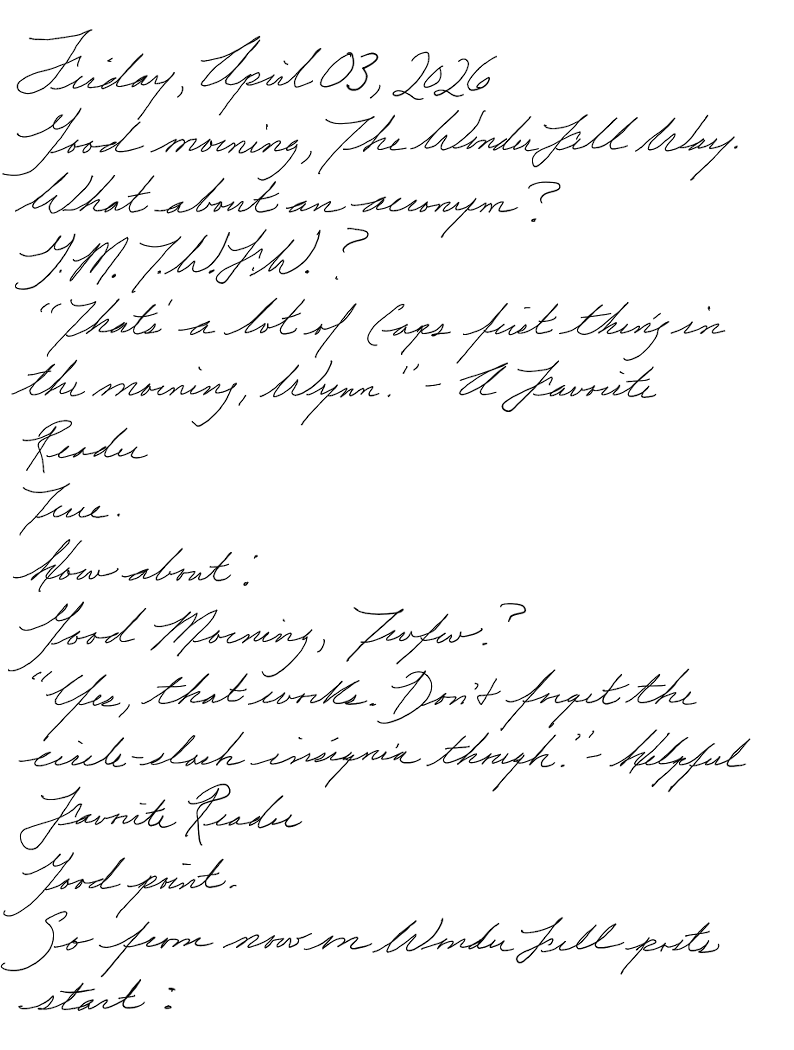 Friday, April 03, 2026
Good morning, The Wonder Full Way.
What about an acronym?
G.M. T.W.F.W.?
"That's a lot of Caps first thing in
the morning, Wynn." - A Favorite
Reader
True.
How about:
Good Morning, Twfw.?
"Yes, that works. Don't forget the
circle-slash insignia though." - Helpful
Favorite Reader
Good point.
So from now on Wonder Full posts
start: